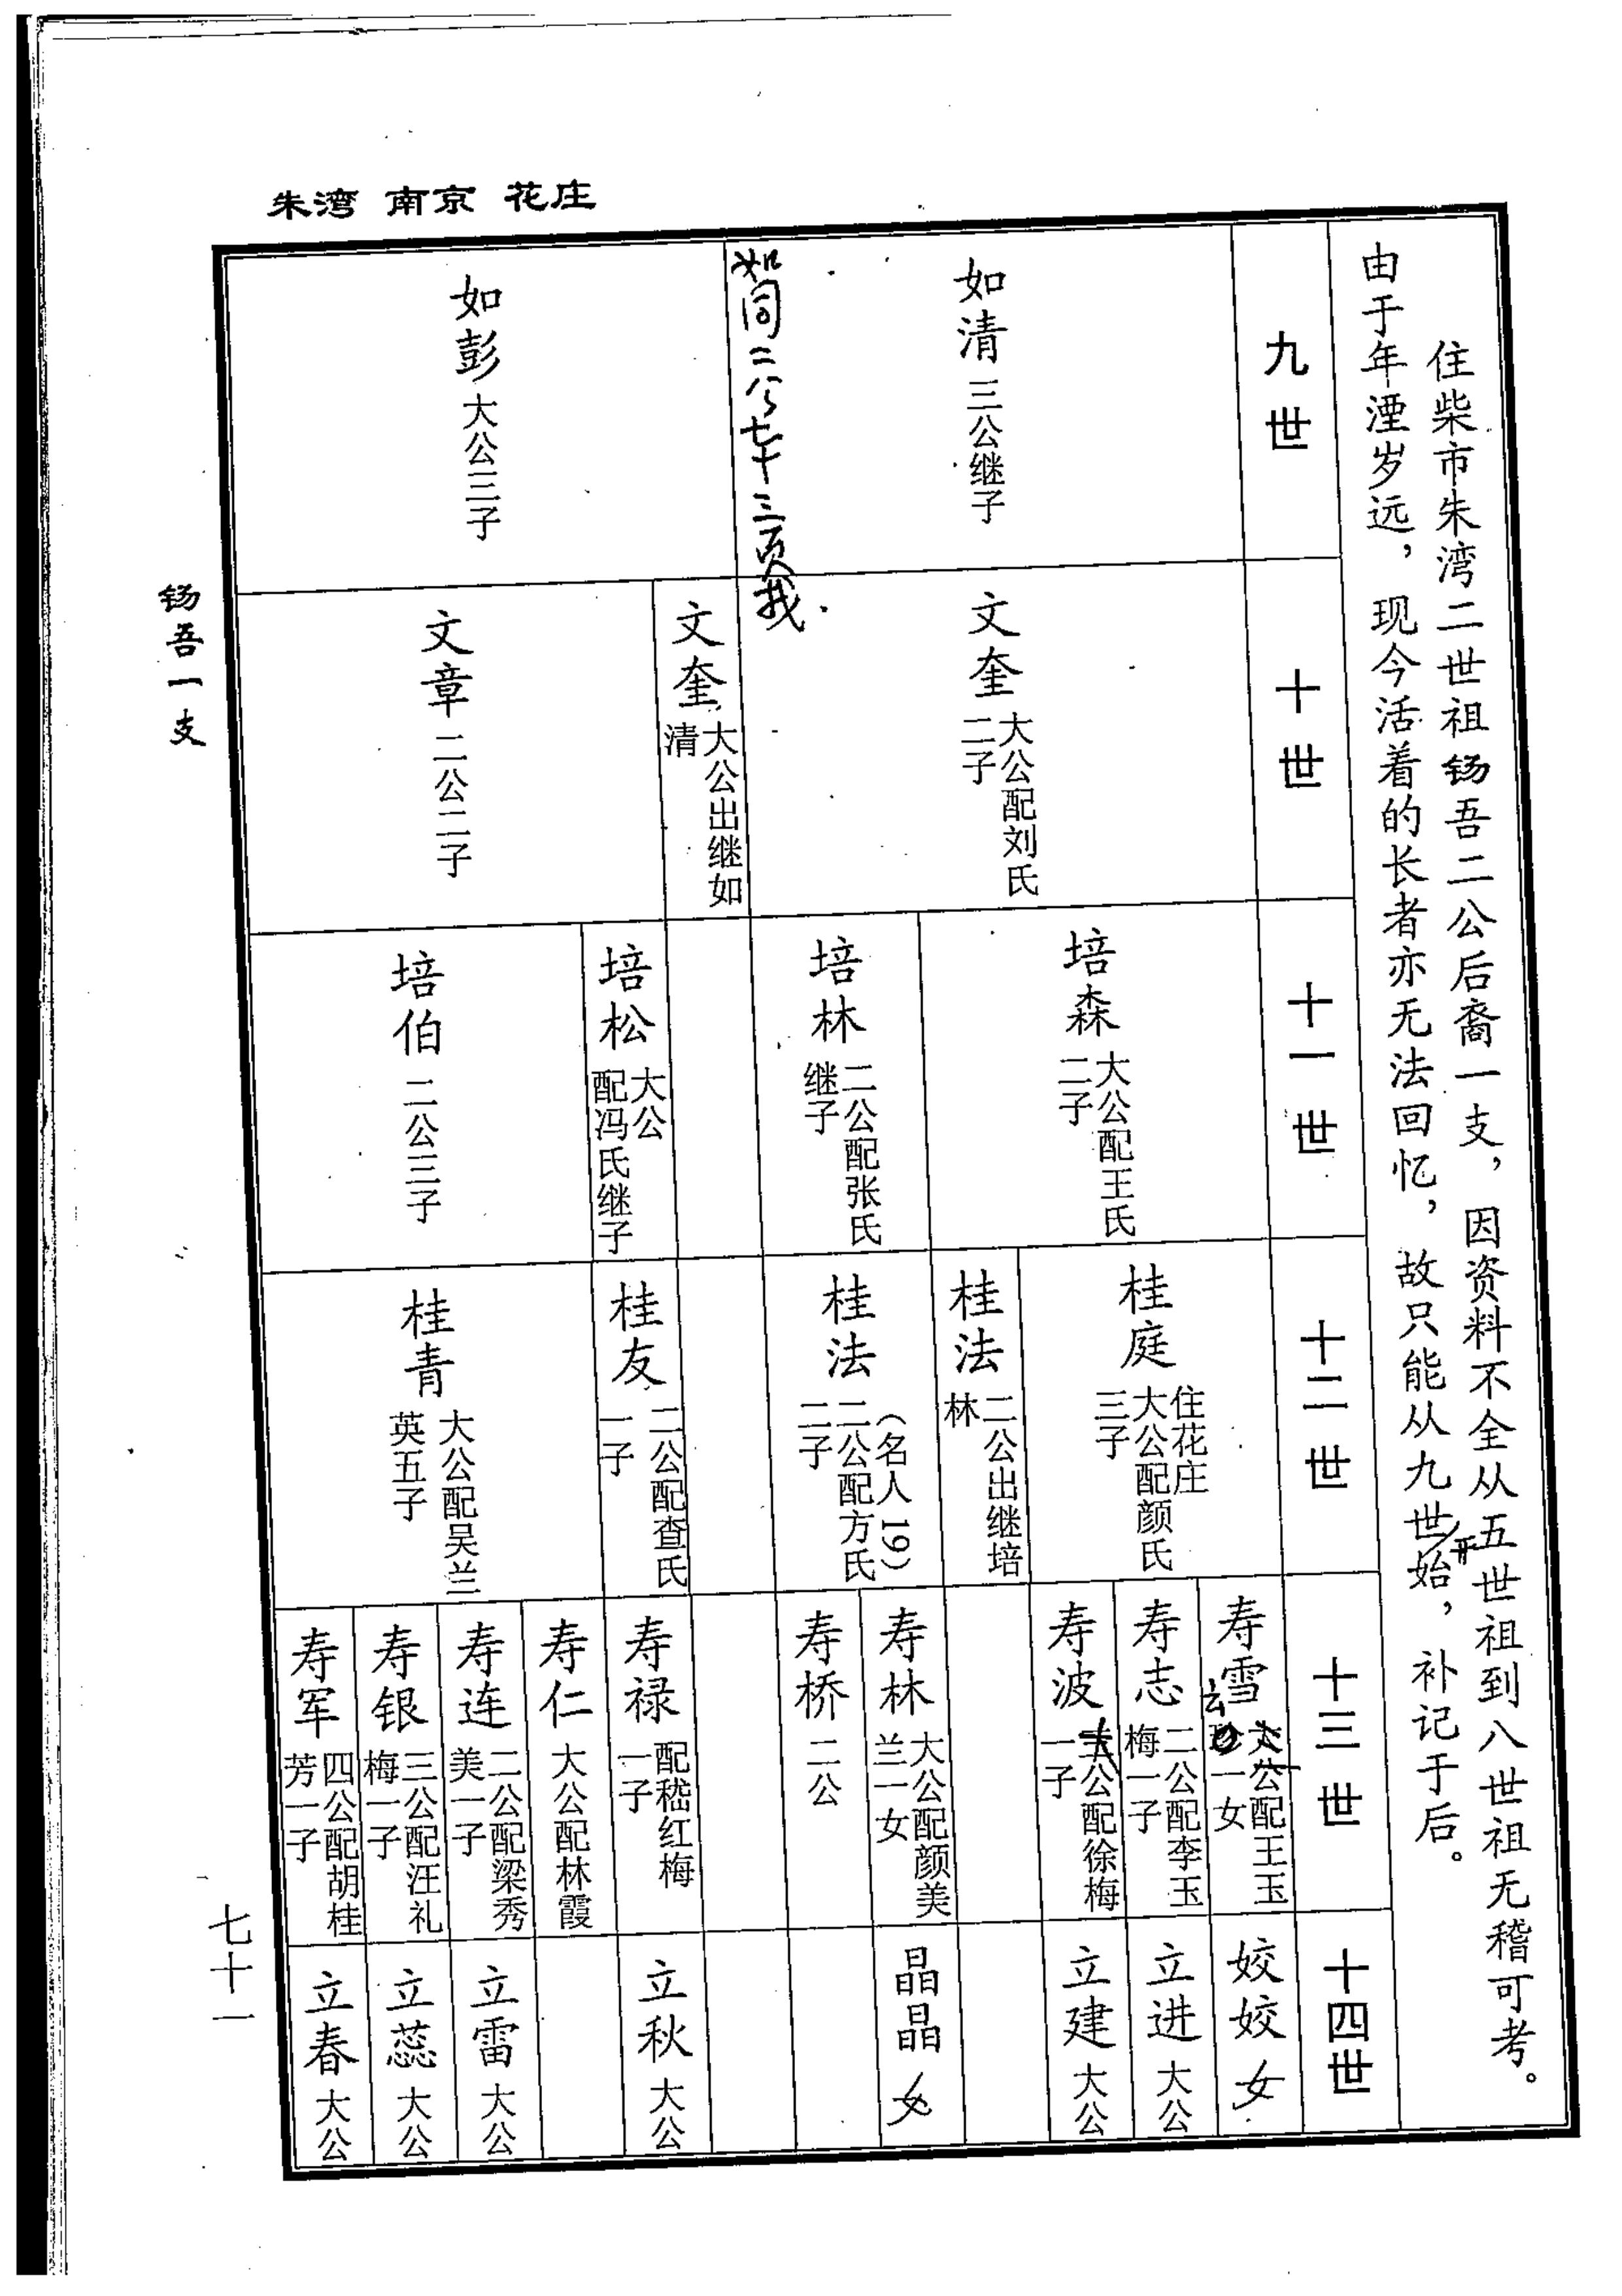 朱湾 南京 花庄
住柴市朱湾二世祖钖吾二公后裔一支，因资料不全从五世祖到八世祖无稽可考。
由于年湮岁远，现今活着的长者亦无法回忆，故只能从九世开始，补记于后。
九世
如清 三公继子
如同二公七十三页找.
如彭 大公三子
十世
文奎 大公配刘氏
二子
文奎 大公出继如
清
文章 二公二子
十一世
培森 大公配王氏
二子
培林 二公配张氏
继子
培松 大公
配冯氏继子
培伯 二公三子
十二世
桂庭 住花庄
大公配颜氏
三子
桂法 二公出继培
林
桂法 （名人19）
二公配方氏
二子
桂友 二公配查氏
一子
桂青 大公配吴兰
英五子
十三世
寿雪 公配王玉
一女
寿志 二公配李玉
梅一子
寿波 公配徐梅
一子
寿林 大公配颜美
兰一女
寿桥 二公
寿禄 配嵇红梅
一子
寿仁 大公配林霞
寿连 二公配梁秀
美一子
寿银 三公配汪礼
梅一子
寿军 四公配胡桂
芳一子
十四世
姣姣 女
立进 大公
立建 大公
晶晶 女
立秋 大公
立雷 大公
立蕊 大公
立春 大公
钖吾一支
七十一